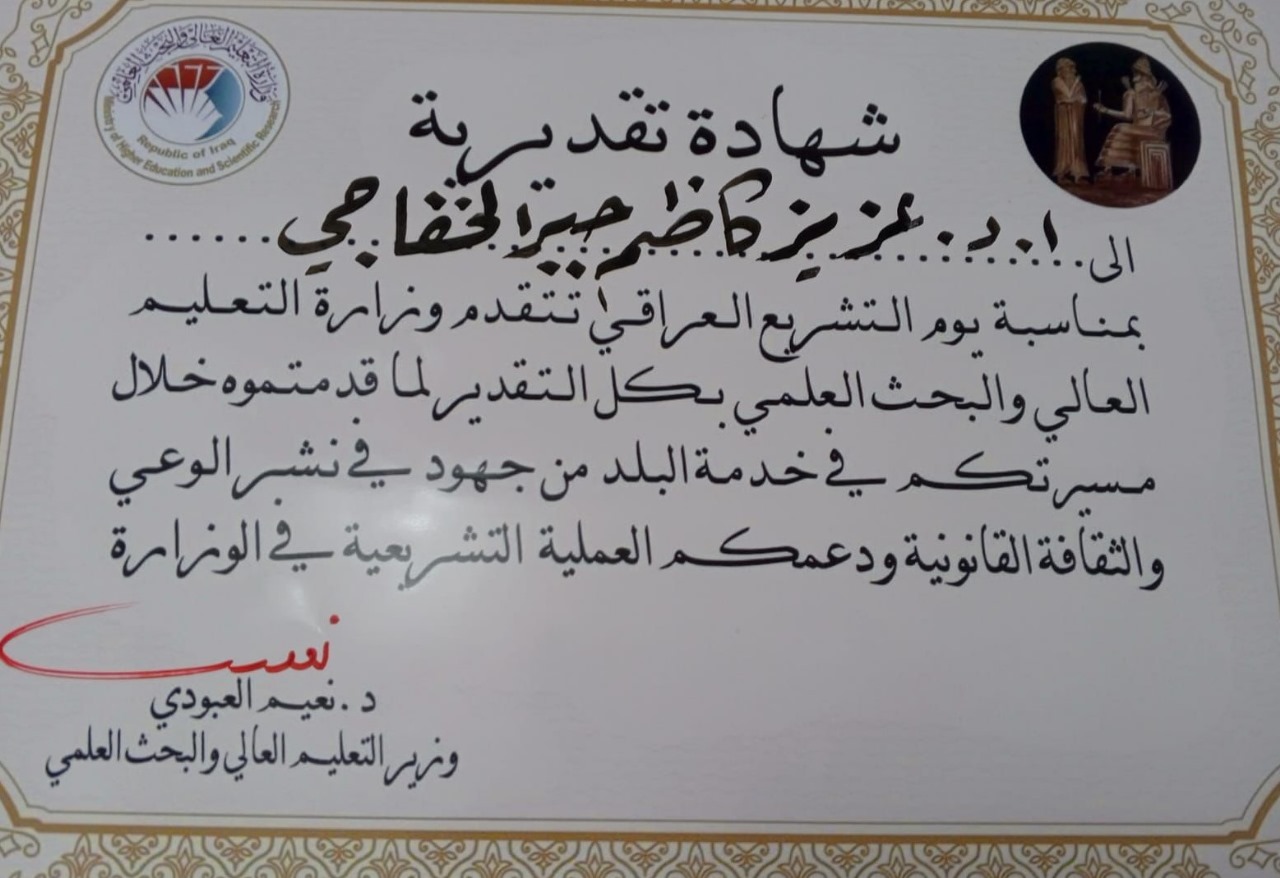 وزارة التعليم العالي والبحث العلمي
Republic of Iraq
Ministry of Higher Education and Scientific Research
شهادة تقديرية
الى ا.د. عزيز كاظم جبر الخفاجي
بمناسبة يوم التشريع العراقي تتقدم وزارة التعليم
العالي والبحث العلمي بكل التقدير لما قدمتموه خلال
مسيرتكم في خدمة البلد من جهود في نشر الوعي
والثقافة القانونية ودعمكم العملية التشريعية في الوزارة
نعيم
د. نعيم العبودي
وزير التعليم العالي والبحث العلمي